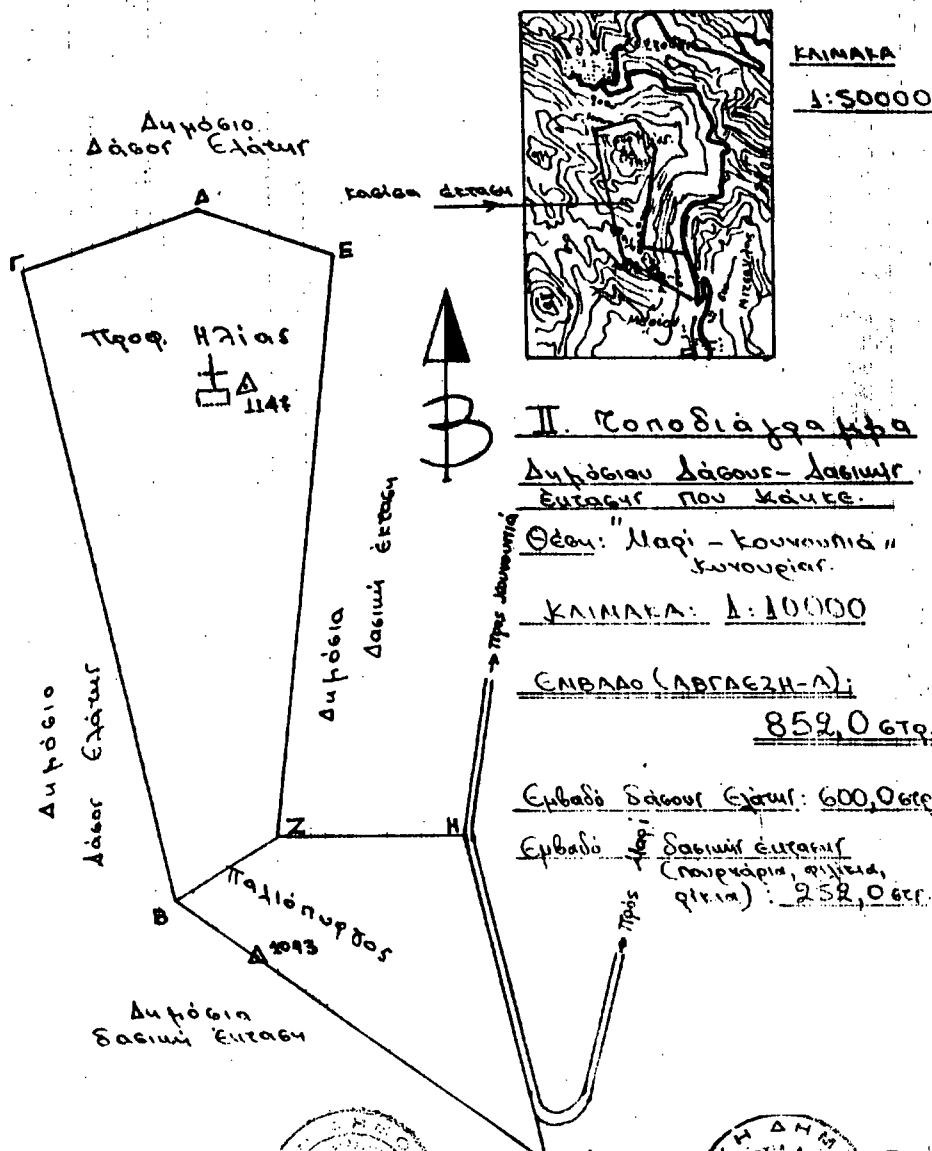 ΚΛΙΜΑΚΑ
1:50000
Δημόσιο
Δάσος Ελάτης
καείσα έκταση
Δ
Γ
Ε
Προφ. Ηλίας
1147
Β
ΙΙ. Τοποδιάγραμμα
Δημόσιου Δάσους - Δασικής
έκτασης που κάηκε.
Θέση: "Μαρί - Κουνουπιά"
Κυνουρίας.
ΚΛΙΜΑΚΑ: 1:10000
ΕΜΒΑΔΟ (ΑΒΓΔΕΖΗ-Α):
852,0 στρ.
Εμβαδό δάσους Ελάτης: 600,0 στρ
Εμβαδό δασικής έκτασης
(πουρνάρια, φιλίκια,
ρίκια): 252,0 στρ.
Δημόσια
Δασική έκταση
→ Προς Κουνουπιά
Δημόσιο
Δάσος Ελάτης
Ζ
Η
→ Πρός Μαρί
Β
Παλιόπυργος
1093
Δημόσια
δασική έκταση
Η ΔΗΜ